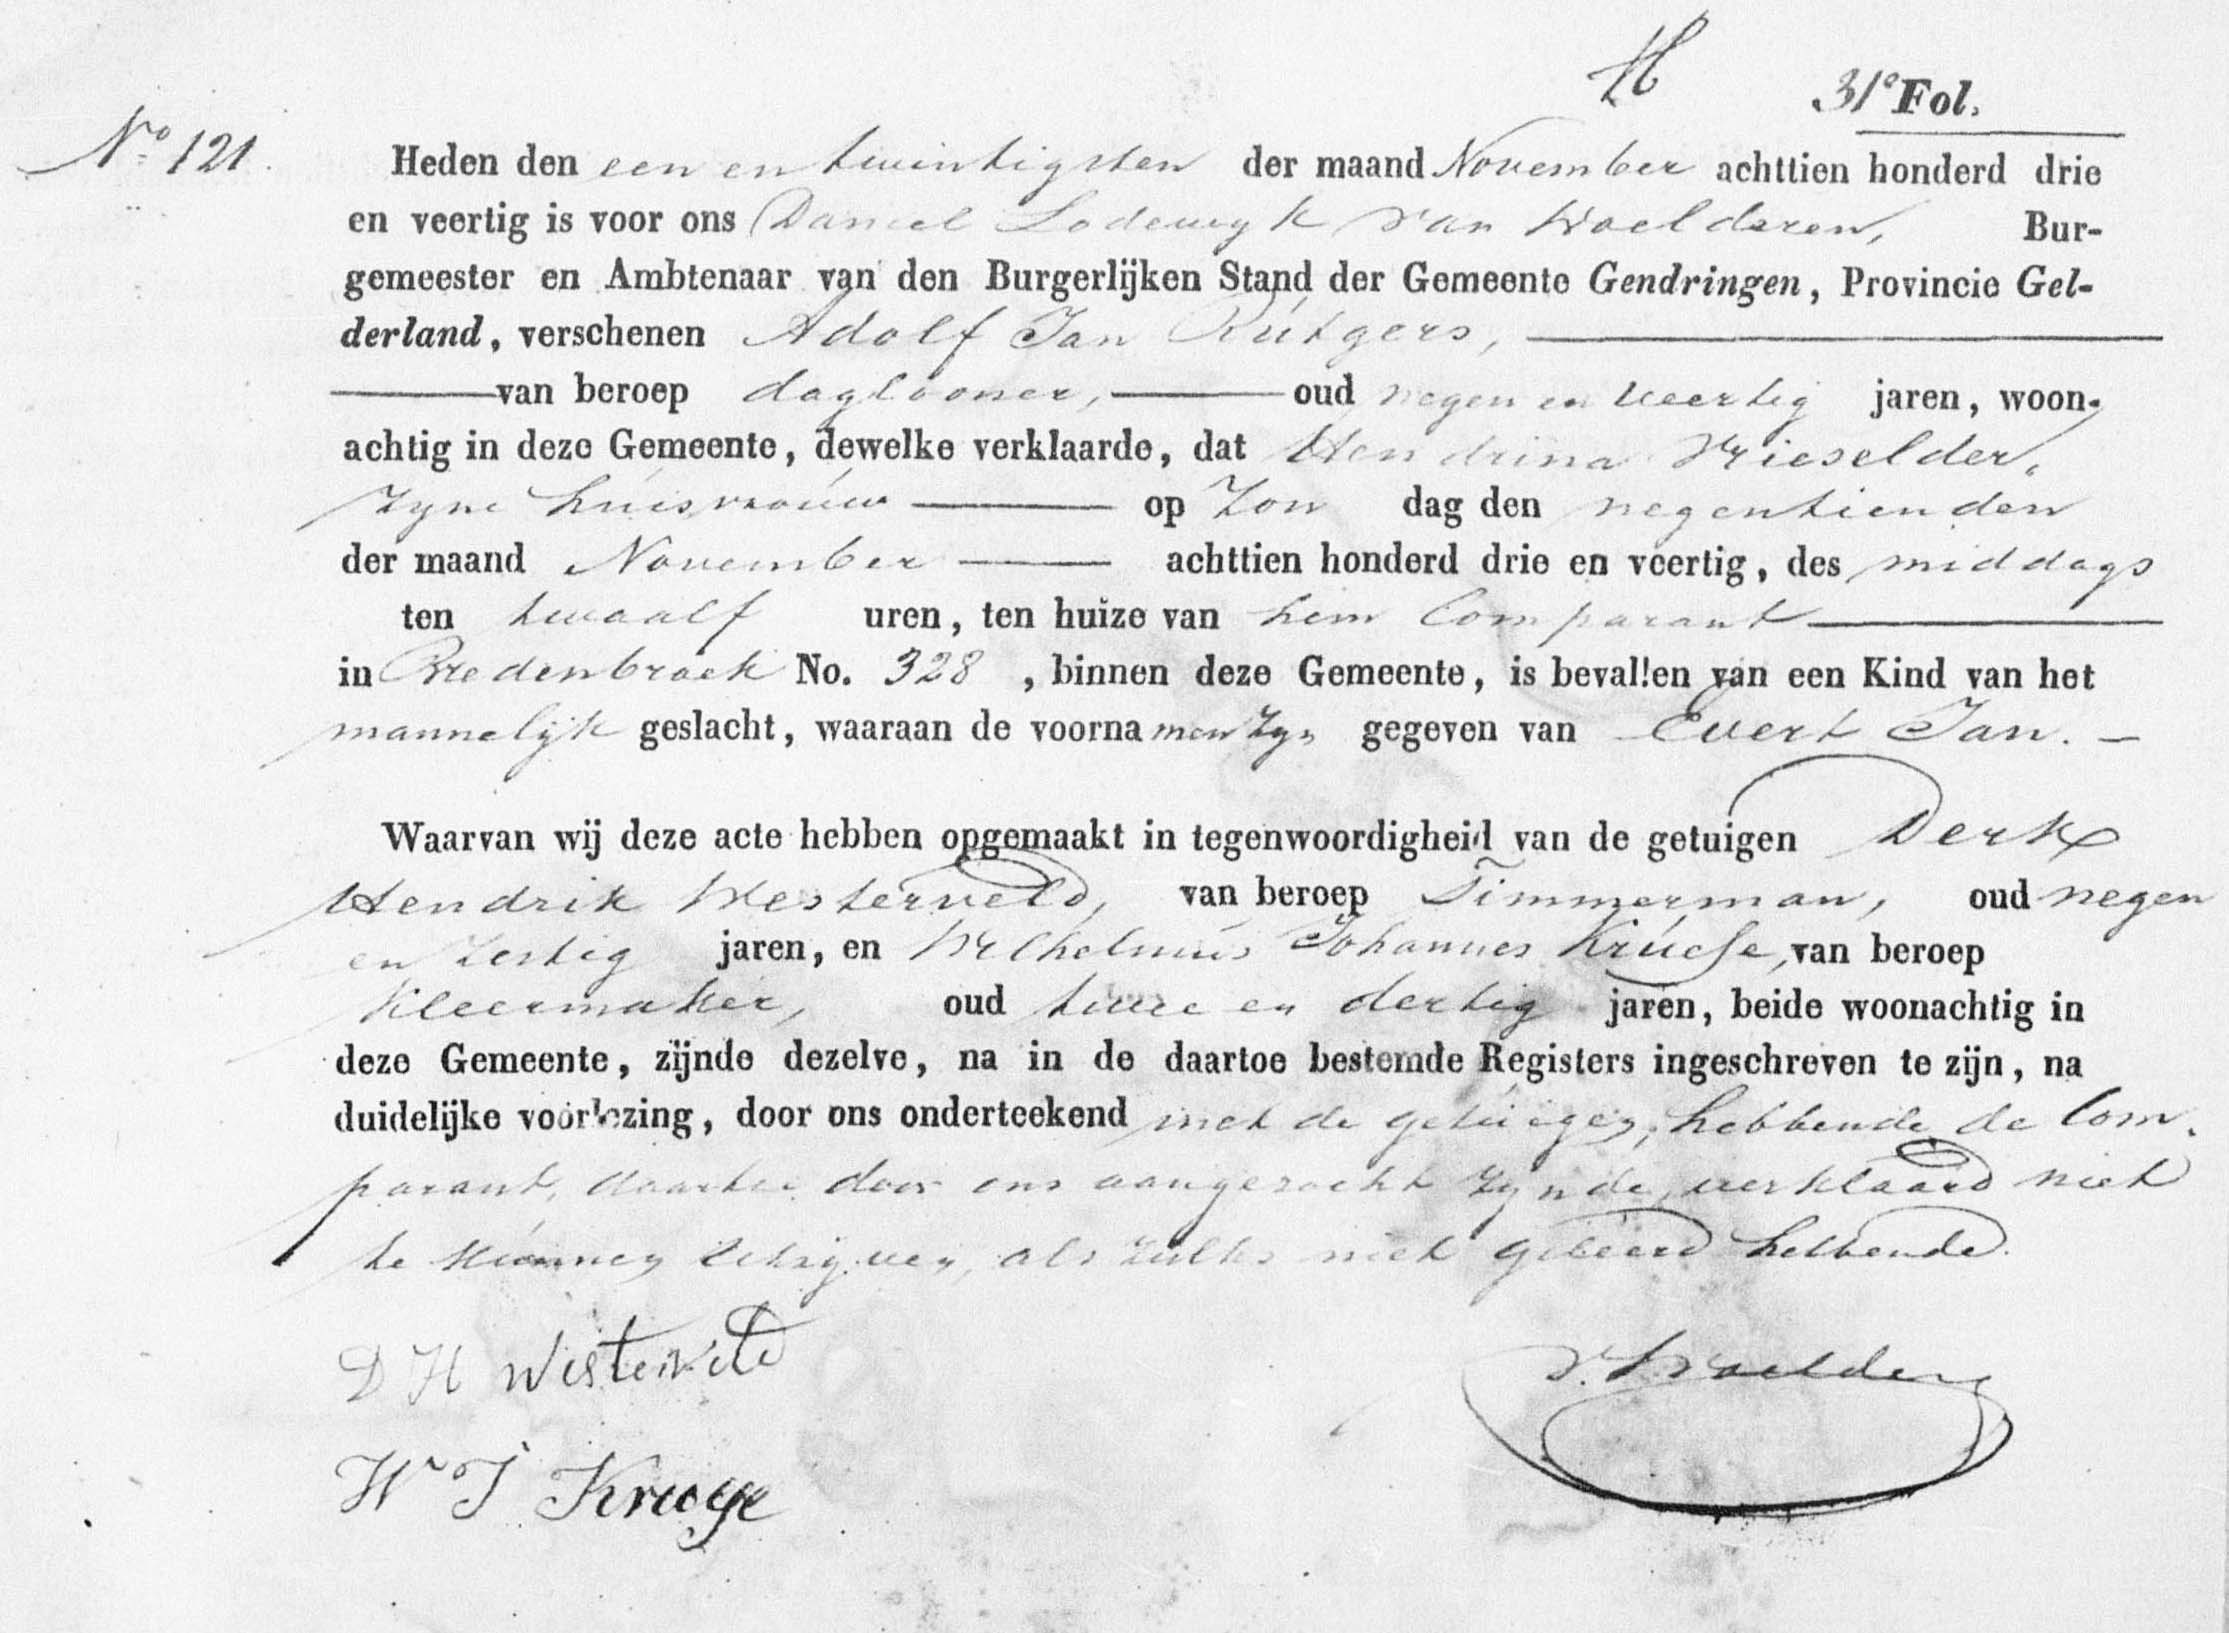 31e Fol.
No 121.
Heden den een en twintigsten der maand November achttien honderd drie
en veertig is voor ons Daniel Lodewyk van Woelderen, Bur-
gemeester en Ambtenaar van den Burgerlijken Stand der Gemeente Gendringen, Provincie Gel-
derland, verschenen Adolf Jan Rutgers,
van beroep daglooner, oud negen en veertig jaren, woon-
achtig in deze Gemeente, dewelke verklaarde, dat Hendrina Vrieselder,
zyne huisvrouw op Zon dag den negentienden
der maand November achttien honderd drie en veertig, des middags
ten twaalf uren, ten huize van hem Comparant
in Bredenbroek No. 328, binnen deze Gemeente, is bevallen van een Kind van het
mannelijk geslacht, waaraan de voornamen zyn gegeven van Evert Jan.
Waarvan wij deze acte hebben opgemaakt in tegenwoordigheid van de getuigen Derk
Hendrik Westerveld, van beroep Timmerman, oud negen
en zestig jaren, en Wilhelmus Johannes Kruese, van beroep
Kleermaker, oud twee en dertig jaren, beide woonachtig in
deze Gemeente, zijnde dezelve, na in de daartoe bestemde Registers ingeschreven te zijn, na
duidelijke voorlezing, door ons onderteekend met de getuigen, hebbende de Com-
parant, daartoe door ons aangezocht zynde, verklaard niet
te kunnen schryven, als zulks niet geleerd hebbende.
D H Westerveld
v. Woelderen
W J Kruese